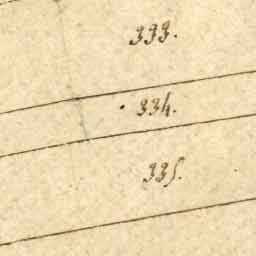 333.
334.
335.